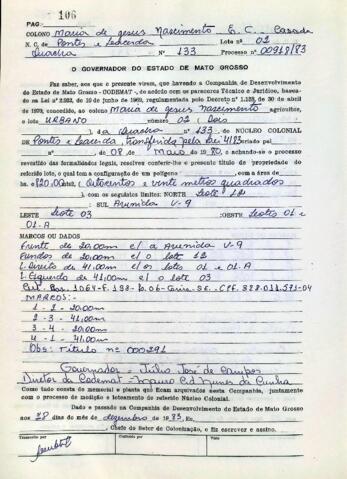 PAG: 106
COLONO Maria de Jesus Nascimento E. C. Casada
N. C. de Pontes e Lacerda Lote nº 02
Quadra Nº 133 Processo 00918/83
O GOVERNADOR DO ESTADO DE MATO GROSSO
Faz saber, aos que o presente virem, que havendo a Companhia de Desenvolvimento
do Estado de Mato Grosso - CODEMAT, de acôrdo com os pareceres Técnico e Jurídico, basea-
da na Lei de 10 de junho de regulamentada pelo Decreto de 30 de abril
de concedido, ao colono Maria de Jesus Nascimento agricultor,
o lote URBANO número 02 dois
da Quadra nº 133, NÚCLEO COLONIAL
de Pontes e Lacerda, transferida pela Lei
de 08 de Maio de 1980 e achando-se o processo
revestido das formalidades legais, resolves conferir-lhe o presente título de propriedade
do referido lote, o qual tem a configuração de um polígono com a área de
820,00 (oitocentos e vinte metros quadrados
), com os seguintes limites: NORTE Lote 12
SUL Avenida V-9
LESTE Lote 03 :OESTE Lotes 01 e
01-A
MARCOS OU DADOS
Frente de 20.00m c/ a Avenida V-9
Fundos de 20.00m c/ o lote 12
L. Direito de 41.00m c/ os lotes 01 e 01-A
L. Esquerdo de 41.00m c/ o lote 03
CPF. 328.011.571-04
MARCOS:-
1 - 2 - 20.00m
2 - 3 - 41.00m
3 - 4 - 20.00m
4 - 1 - 41.00m
Obs: Título nº 000291
Governador - Júlio José de Campos
Diretor da Codemat - Nunes da Cunha
Como tudo consta do memorial e planta que ficam arquivados nesta Companhia, juntamente
com o processo de medição e loteamento do referido Núcleo Colonial.
Dado e passado na Companhia de Desenvolvimento do Estado de Mato Grosso
aos 28 dias do mês de dezembro de 1983. Eu,
, Chefe do Setor de Colonização, o fiz escrever e assino.
Transcrito por
Conferido por
Visto